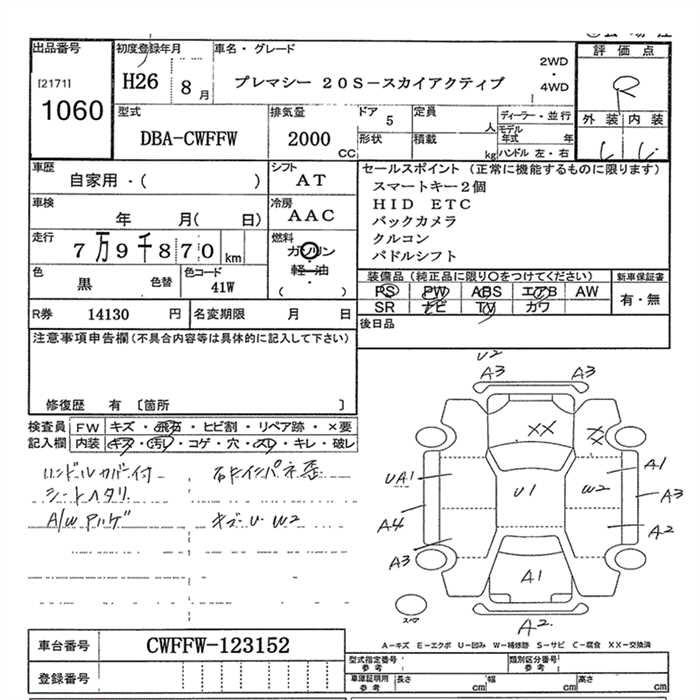 出品番号
[2171]
1060
初度登録年月
H26 8 月
車名・グレード
プレマシー 20S−スカイアクティブ
2WD
・
4WD
評価点
R
外装 内装
型式
DBA-CWFFW
排気量
2000 CC
ドア 5
形状
定員 人
積載 kg
ディーラー・並行
モデル年式 年
ハンドル 左・右
車歴
自家用・( )
シフト
AT
車検
年 月( 日)
冷房
AAC
走行
7万9千870 km
燃料
ガソリン
・
軽油
・
( )
色
黒 色替
色コード
41W
R券 14130 円
名変期限 月 日
セールスポイント (正常に機能するものに限ります)
スマートキー2個
HID ETC
バックカメラ
クルコン
パドルシフト
装備品 (純正品に限り○をつけてください)
PS PW ABS エアB AW
SR ナビ TV カワ
新車保証書
有・無
後日品
注意事項申告欄 (不具合内容等は具体的に記入して下さい)
修復歴 有 〔箇所 〕
検査員記入欄
FW キズ・飛石・ヒビ割・リペア跡・×要
内装 キズ・汚レ・コゲ・穴・スレ・キレ・破レ
ハンドルカバー付
シートヘタリ
A/W
キズ U W2
U2
A3 A3
XX XX
UA1 U1 W2 A1
A4 A3
A3 A2
A1
スペア
A2
A−キズ E−エクボ U−凹み W−補修跡 S−サビ C−腐食 XX−交換済
車台番号 CWFFW-123152
登録番号
型式指定番号 参考
類別区分番号 参考
車庫証明用 参考
長さ cm 幅 cm 高さ cm